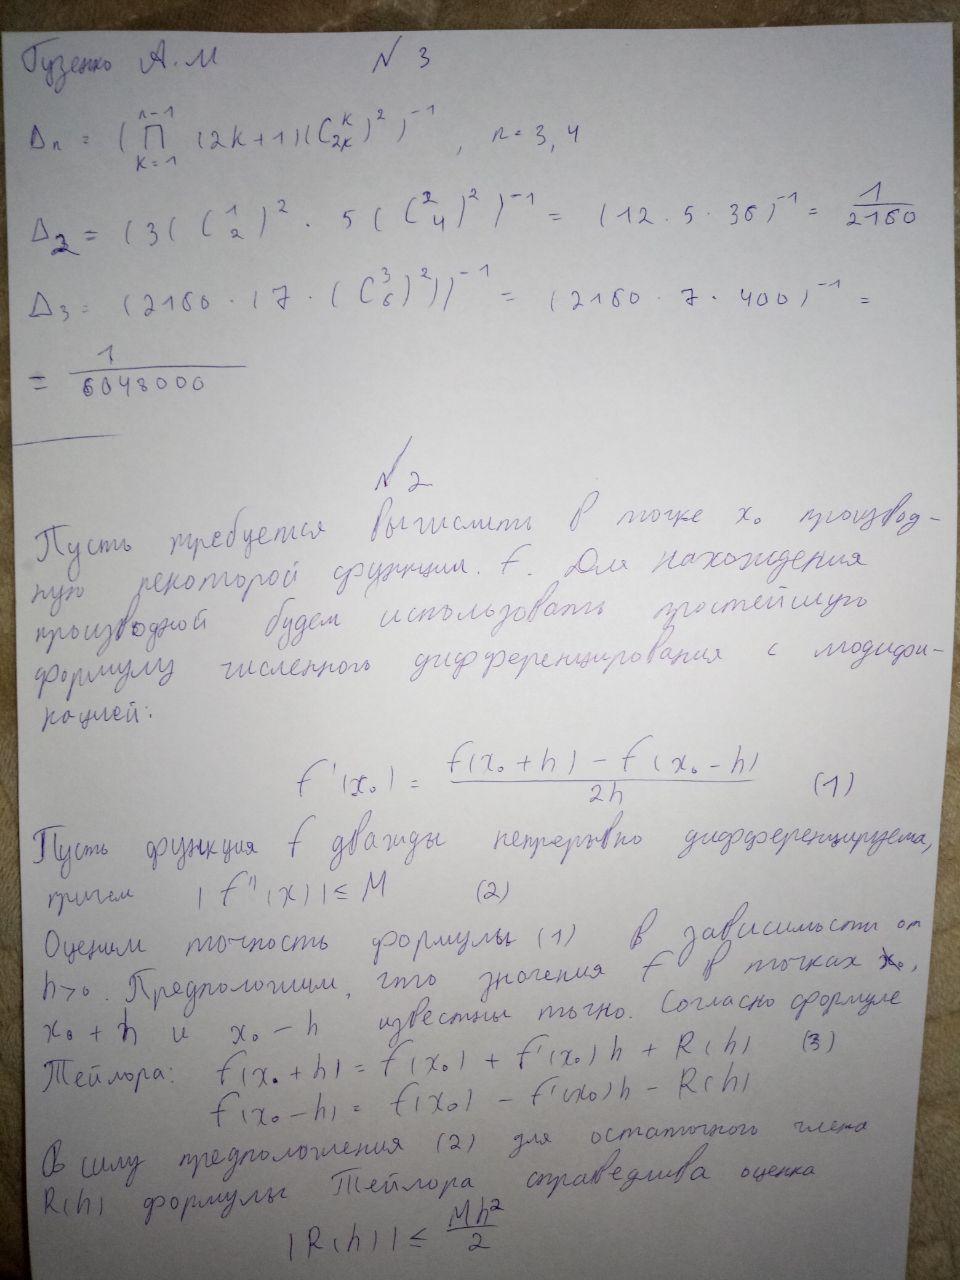 Гузенко А.М № 3
Δn = (∏_{k=1}^{n-1} (2k+1)(C_{2k}^{k})^2)^{-1}, n = 3, 4
Δ2 = (3(C_2^1)^2 · 5(C_4^2)^2)^{-1} = (12 · 5 · 36)^{-1} = 1/2160
Δ3 = (2160 · (7 · (C_6^3)^2))^{-1} = (2160 · 7 · 400)^{-1} =
= 1/6048000
№ 2
Пусть требуется вычислить в точке x₀ производ-
ную некоторой функции f. Для нахождения
производной будем использовать простейшую
формулу численного дифференцирования с модифи-
кацией:
f'(x₀) = (f(x₀+h) - f(x₀-h))/2h (1)
Пусть функция f дважды непрерывно дифференцируема,
причем |f''(x)| ≤ M (2)
Оценим точность формулы (1) в зависимости от
h>0. Предположим, что значения f в точках
x₀+h и x₀-h известны точно. Согласно формуле
Тейлора: f(x₀+h) = f(x₀) + f'(x₀)h + R(h) (3)
f(x₀-h) = f(x₀) - f'(x₀)h - R(h)
В силу предположения (2) для остаточного члена
R(h) формулы Тейлора справедлива оценка
|R(h)| ≤ Mh²/2